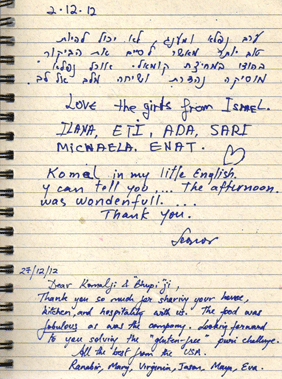 2.12.12
ערב נפלא ומענג, לא יכול להיות
טוב יותר מאשר לסיים את הביקור
בהודו במחיצת קומאל. אוכל נפלא
מוסיקה נהדרת ושיחה מלב אל לב.
Love the girls from ISRAEL.
ILANA, ETI, ADA, SARI
MICHAELA. ENAT.
Komal in my little English.
y can tell you .... The afternoon.
was wondenfull. ...
Thank you.
27/12/12
Dear Komalji & "Bhupi"ji,
Thank you so much for sharing your house,
kitchen, and hospitality with us. The food was
fabulous as was the company. Looking forward
to you solving the "gluten-free" puri challenge.
All the best from the USA.
Ranabir, Mary, Virginia, Jason, Maya, Eva.